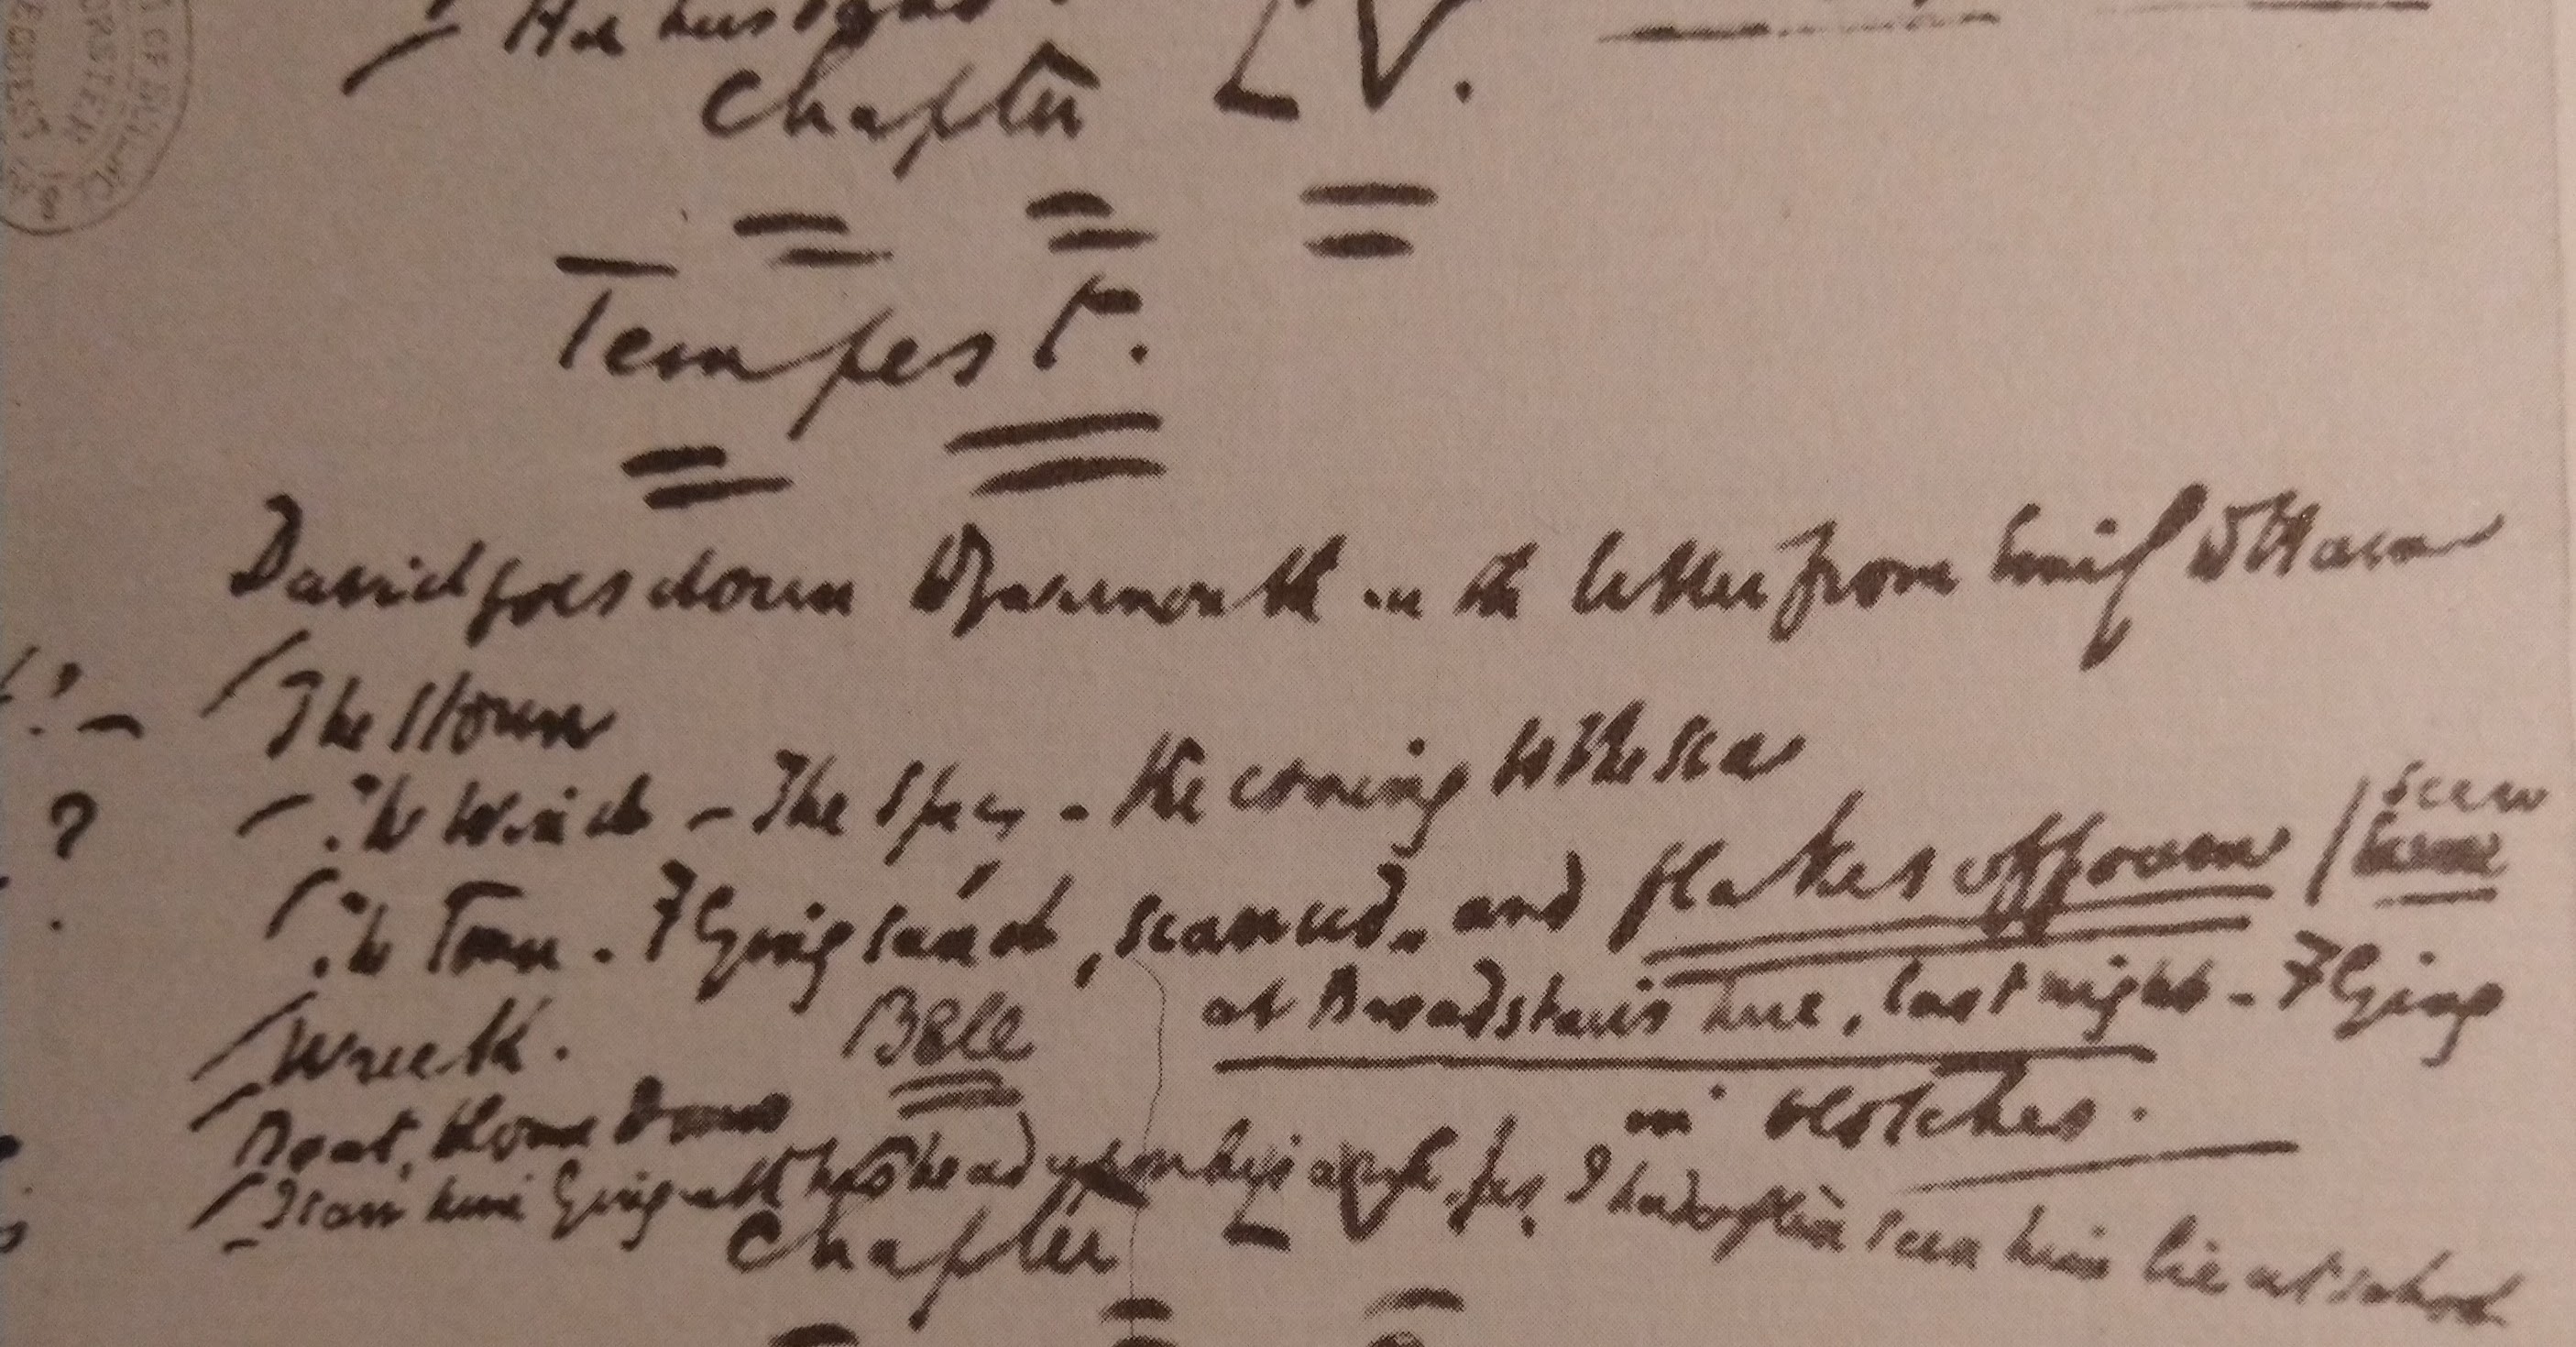 Her husband.
Chapter LV.
Tempest.
David goes down to Yarmouth in the letter from Emily to Ham
The Storm
The Wind – The Spray – the coming to the sea
The Town. Flying sand, seaweed, and flakes of foam / seen
at Broadstairs here, last night – Flying
in blotches.
Wreck. Bell
Boat, blown down
I saw him lying with his head upon his arm, as I had often seen him lie at school
Chapter LV